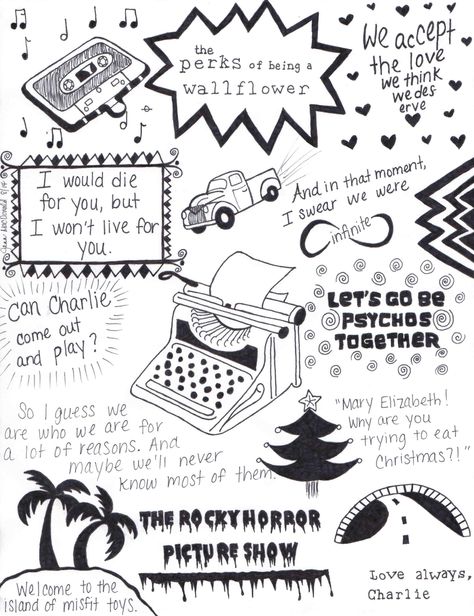 the
perks of being a
wallflower
We accept
the love
we think
we des
erve
I would die
for you, but
I won't live for
you.
And in that moment,
I swear we were
infinite
Can Charlie
come out
and play?
LET'S GO BE
PSYCHOS
TOGETHER
So I guess we
are who we are for
a lot of reasons. And
maybe we'll never
know most of them.
"Mary Elizabeth!
Why are you
trying to eat
Christmas?!"
THE ROCKY HORROR
PICTURE SHOW
Welcome to the
island of misfit toys.
Love always,
Charlie